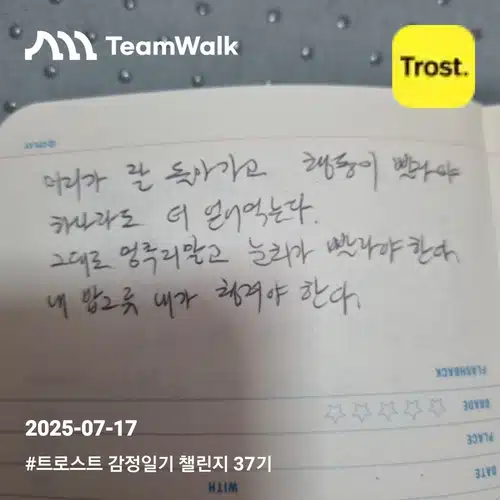 TeamWalk
Trost.
머리가 잘 돌아가고 행동이 빨라야
하나라도 더 얻어먹는다.
그대로 멍 말고 눈치가 빨라야 한다.
내 밥그릇 내가 챙겨야 한다.
FLASHBACK
GRADE
PLACE
DATE
WITH
2025-07-17
#트로스트 감정일기 챌린지 37기